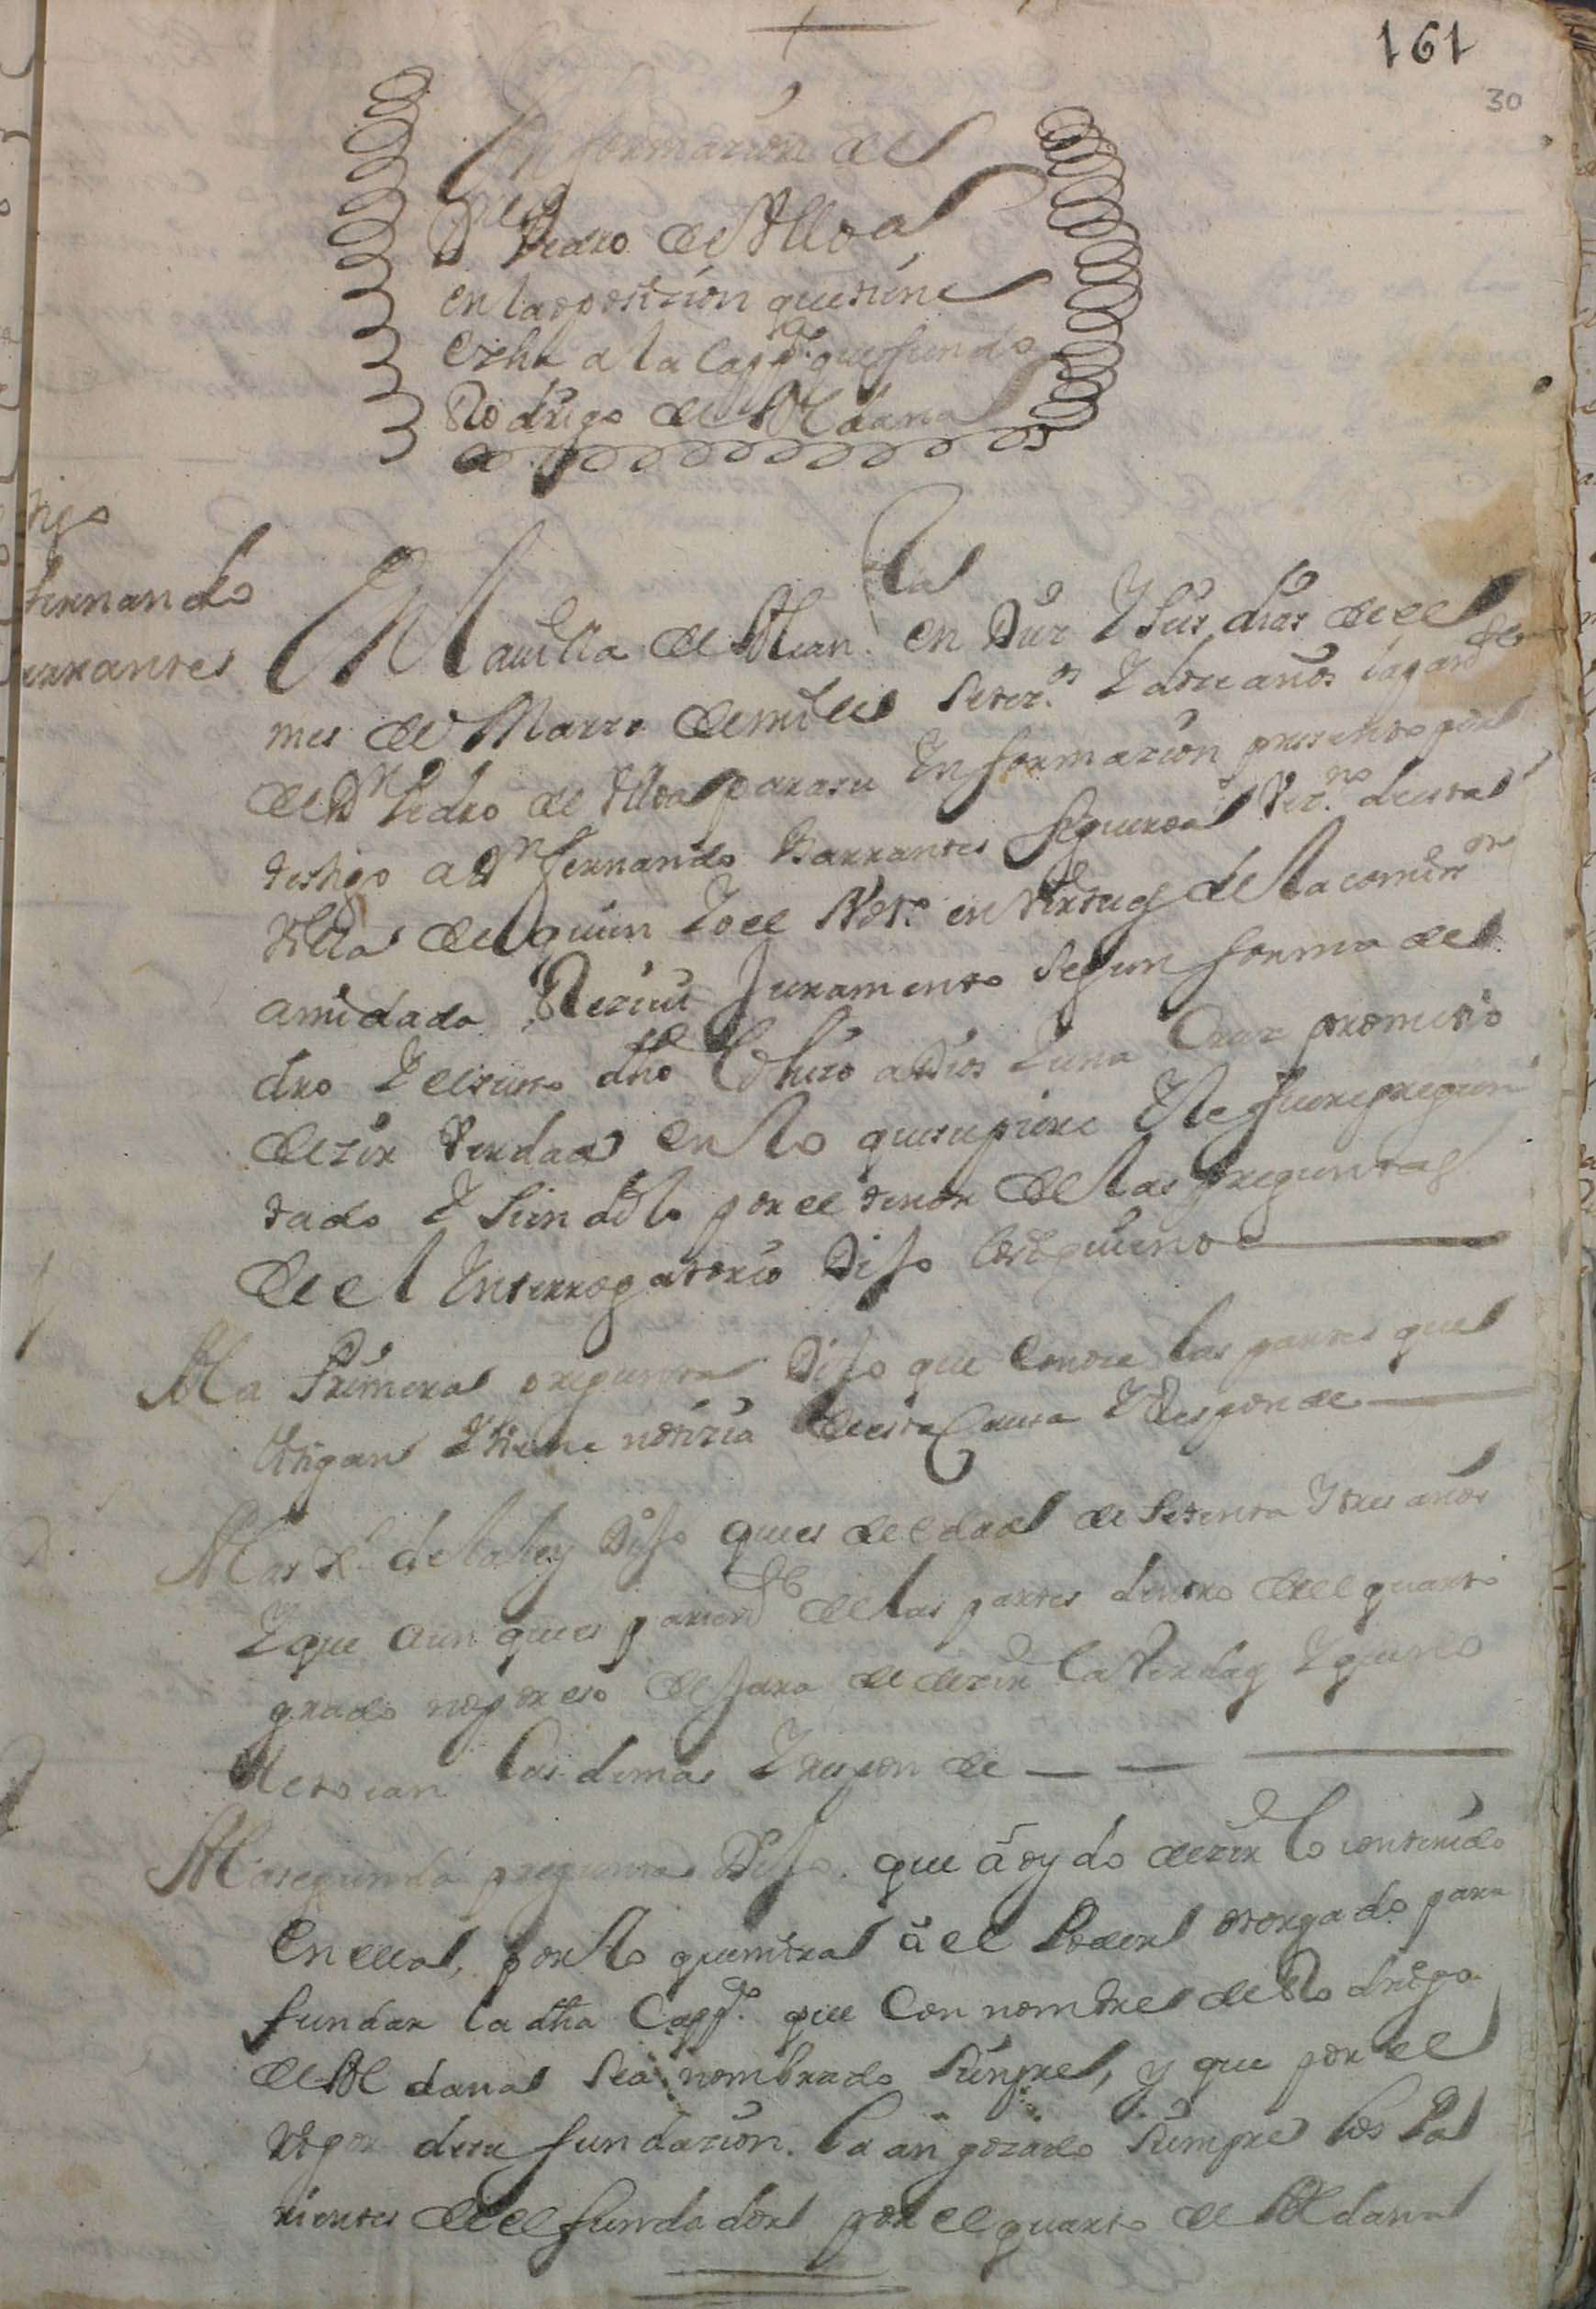 161
30
Informazion de
Dn Pedro de Vlloa
en la oposizion que tiene
echa a la Capp.a que fundo
Rodrigo de Aldana
tigo
fernando
arrantes
En la villa de Alcan.ta en Diez Y seis dias de el
mes de Marzo de mill Setez.os Y doze años la parte
de Dn Pedro de Vlloa para su Informazion presento por
testigo a Dn fernando Barrantes figueroa Vez.no de esta
Villa de quien Yo el Not.o en Virtud de la comis.on
ami dada Reziui Juramento Segun forma de
dro Y el suso dho lo hizo a Dios Y una Cruz prometio
dezir Verdad en lo que supiere Y le fuere pregun
tado Y Siendolo por el tenor de las preguntas
de el Interrogatorio Dijo lo siguiente
1
A la Primera pregunta Dijo que conoze las partes que
litigan Y tiene notizia de esta Causa Y Responde
2.
A las g.les de la ley Dijo que es de edad de Setenta Y tres años
Y que aun que es pariente de las partes dentro de el quarto
grado no por eso dejara de dezir la Verdad Y que no
le tocan las demas Y responde
A la segunda pregunta Dijo. que à oydo dezir lo contenido
en ella, por lo que mira à el Poder otorgado para
fundar la dha Capp.a que con nombre de Rodrigo
de Aldana Sea nombrado Siempre, y que por el
tenor de su fundazion. la an gozado Siempre los Pa
rientes de el fundador por el quarto de Aldana